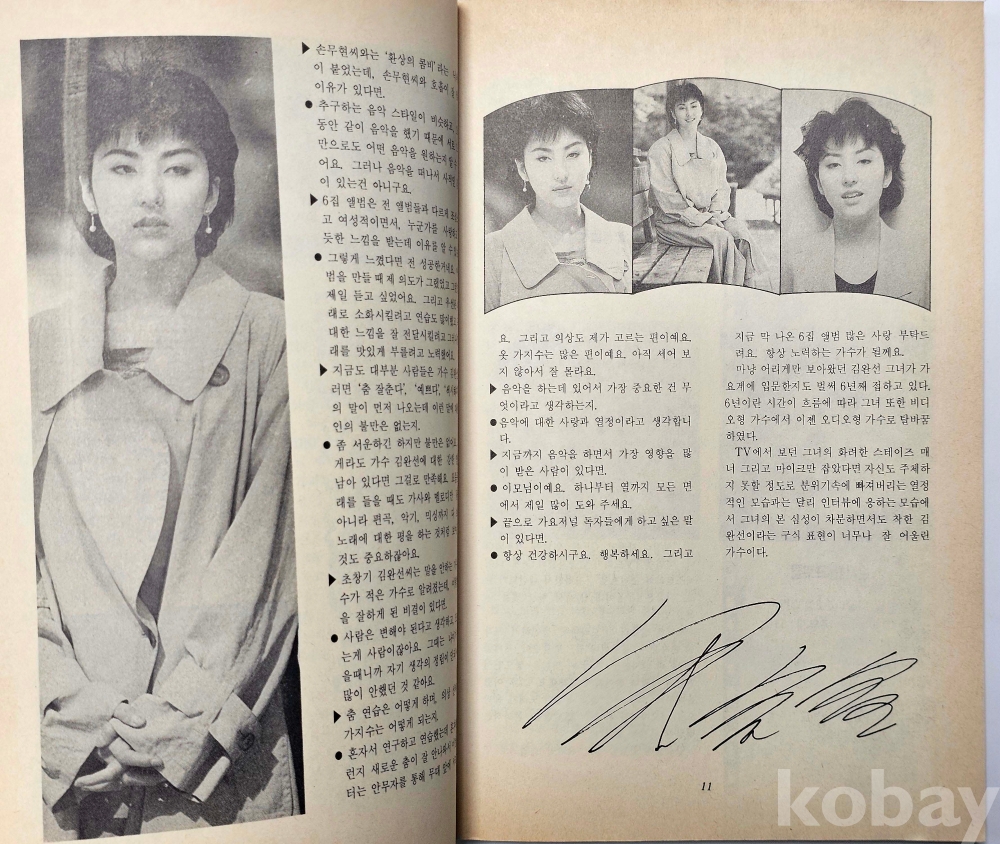 ▶ 손무현씨와는 '환상의 콤비'라는
이 붙었는데, 손무현씨와 호흡이
이유가 있다면.
● 추구하는 음악 스타일이 비슷하고,
동안 같이 음악을 했기 때문에 서로
만으로도 어떤 음악을 원하는지 알
어요. 그러나 음악을 떠나서 사적인
이 있는건 아니구요.
▶ 6집 앨범은 전 앨범들과 다르게
고 여성적이면서, 누군가를
듯한 느낌을 받는데 이유를 알 수
● 그렇게 느꼈다면 전 성공한거네요.
범을 만들 때 제 의도가 그랬었고
제일 듣고 싶었어요. 그리고
래로 소화시킬려고 연습도 많이했고
대한 느낌을 잘 전달시킬려고
래를 맛있게 부를려고 노력했어요.
▶ 지금도 대부분 사람들은 가수
러면 '춤 잘춘다', '예쁘다',
의 말이 먼저 나오는데 이런 점에
인의 불만은 없는지.
● 좀 서운하긴 하지만 불만은 없어요.
게라도 가수 김완선에 대한
남아 있다면 그걸로 만족해요.
래를 들을 때도 가사와 멜로디만
아니라 편곡, 악기, 믹싱까지
노래에 대한 평을 하는 것처럼
것도 중요하잖아요.
▶ 초창기 김완선씨는 말을 안하는
수가 적은 가수로 알려졌는데,
을 잘하게 된 비결이 있다면.
● 사람은 변해야 된다고 생각하고
는게 사람이잖아요. 그때는
을때니까 자기 생각의 정립이
많이 안했던 것 같아요.
▶ 춤 연습은 어떻게 하며, 의상
가지수는 어떻게 되는지.
● 혼자서 연구하고 연습했는데
런지 새로운 춤이 잘 안나와서
터는 안무자를 통해 무대
요. 그리고 의상도 제가 고르는 편이예요.
옷 가지수는 많은 편이예요. 아직 세어 보
지 않아서 잘 몰라요.
▶ 음악을 하는데 있어서 가장 중요한 건 무
엇이라고 생각하는지.
● 음악에 대한 사랑과 열정이라고 생각합니
다.
▶ 지금까지 음악을 하면서 가장 영향을 많
이 받은 사람이 있다면.
● 이모님이예요. 하나부터 열까지 모든 면
에서 제일 많이 도와 주세요.
▶ 끝으로 가요저널 독자들에게 하고 싶은 말
이 있다면.
● 항상 건강하시구요. 행복하세요. 그리고
지금 막 나온 6집 앨범 많은 사랑 부탁드
려요. 항상 노력하는 가수가 될께요.
마냥 어리게만 보아왔던 김완선 그녀가 가
요계에 입문한지도 벌써 6년째 접하고 있다.
6년이란 시간이 흐름에 따라 그녀 또한 비디
오형 가수에서 이젠 오디오형 가수로 탈바꿈
하였다.
TV에서 보던 그녀의 화려한 스테이즈 매
너 그리고 마이크만 잡았다면 자신도 주체하
지 못할 정도로 분위기속에 빠져버리는 열정
적인 모습과는 달리 인터뷰에 응하는 모습에
서 그녀의 본 심성이 차분하면서도 착한 김
완선이라는 구식 표현이 너무나 잘 어울린
가수이다.
11
kobay